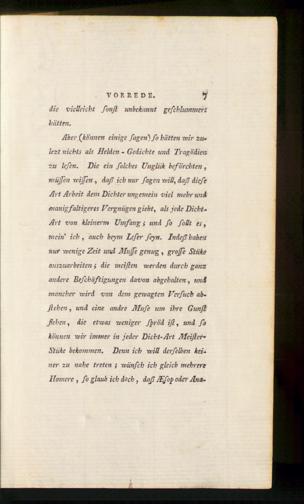 VORREDE. 7
die vielleicht ſonſt unbekannt geſchlummert
hätten.
Aber (können einige ſagen) ſo hätten wir zu-
lezt nichts als Helden-Gedichte und Tragödien
zu leſen. Die ein ſolches Unglük befürchten,
müſſen wiſſen, daß ich nur ſagen will, daß dieſe
Art Arbeit dem Dichter ungemein viel mehr und
manigfaltigeres Vergnügen giebt, als jede Dicht-
Art von kleinerm Umfang; und ſo ſollt es,
mein' ich, auch beym Leſer ſeyn. Indeß haben
nur wenige Zeit und Muſſe genug, groſſe Stüke
auszuarbeiten; die meiſten werden durch ganz
andere Beſchäftigungen davon abgehalten, und
mancher wird von dem gewagten Verſuch ab-
ſtehen, und eine andre Muſe um ihre Gunſt
flehen, die etwas weniger ſpröd iſt, und ſo
können wir immer in jeder Dicht-Art Meiſter-
Stüke bekommen. Denn ich will derſelben kei-
ner zu nahe treten; wünſch ich gleich mehrere
Homere, ſo glaub ich doch, daß Æſop oder Ana-